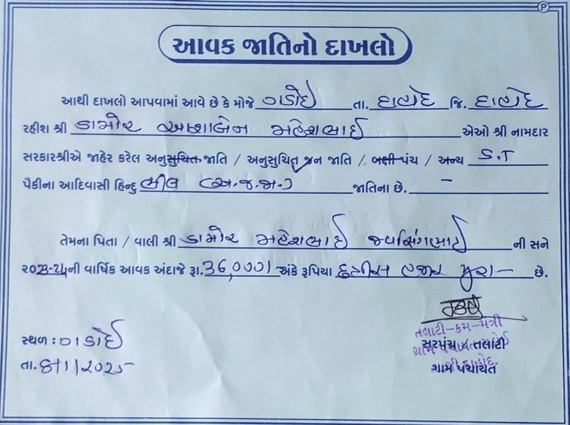 આવક જાતિનો દાખલો
આથી દાખલો આપવામાં આવે છે કે મોજે ગડોઈ તા. દાહોદ જિ. દાહોદ
રહીશ શ્રી ડામોર આશાબેન મહેશભાઈ એઓ શ્રી નામદાર
સરકારશ્રીએ જાહેર કરેલ અનુસુચિત જાતિ / અનુસુચિત જન જાતિ / બક્ષી પંચ / અન્ય S.T
પૈકીના આદિવાસી હિન્દુ ભીલ (અ.જ.જા.) જાતિના છે. –
તેમના પિતા / વાલી શ્રી ડામોર મહેશભાઈ જવસિંગભાઈ ની સને
૨૦23-24ની વાર્ષિક આવક અંદાજે રૂા. 36,000/ અંકે રૂપિયા છત્રીસ હજાર પુરા – છે.
સ્થળ : ગડોઈ
તા. 8/1/2025
તલાટી-કમ-મંત્રી
સરપંચ / તલાટી
ગ્રામ પંચાયત